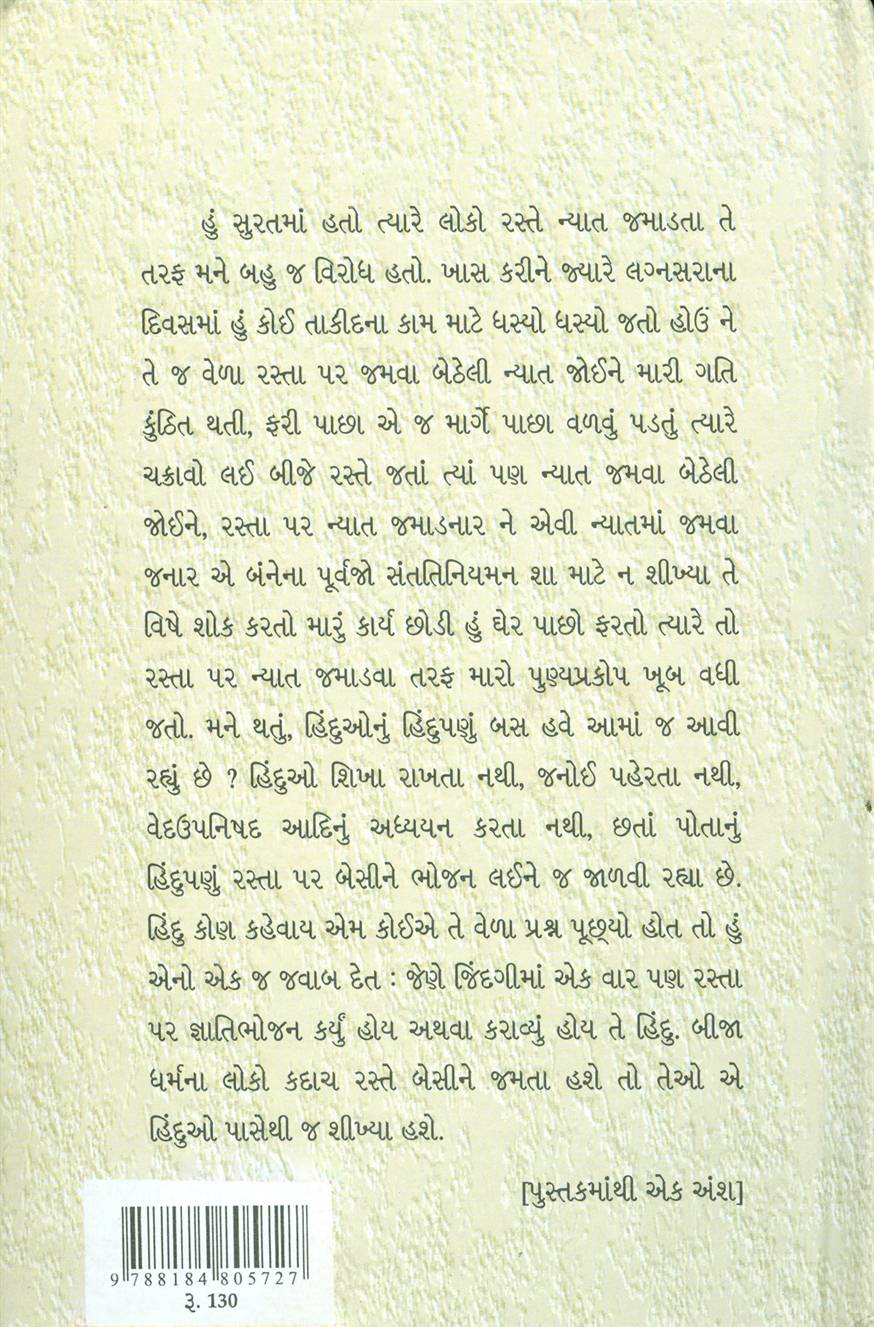 હું સુરતમાં હતો ત્યારે લોકો રસ્તે ન્યાત જમાડતા તે
તરફ મને બહુ જ વિરોધ હતો. ખાસ કરીને જ્યારે લગ્નસરાના
દિવસમાં હું કોઈ તાકીદના કામ માટે ધસ્યો ધસ્યો જતો હોઉં ને
તે જ વેળા રસ્તા પર જમવા બેઠેલી ન્યાત જોઈને મારી ગતિ
કુંઠિત થતી, ફરી પાછા એ જ માર્ગે પાછા વળવું પડતું ત્યારે
ચક્રાવો લઈ બીજે રસ્તે જતાં ત્યાં પણ ન્યાત જમવા બેઠેલી
જોઈને, રસ્તા પર ન્યાત જમાડનાર ને એવી ન્યાતમાં જમવા
જનાર એ બંનેના પૂર્વજો સંતતિનિયમન શા માટે ન શીખ્યા તે
વિષે શોક કરતો મારું કાર્ય છોડી હું ઘેર પાછો ફરતો ત્યારે તો
રસ્તા પર ન્યાત જમાડવા તરફ મારો પુણ્યપ્રકોપ ખૂબ વધી
જતો. મને થતું, હિંદુઓનું હિંદુપણું બસ હવે આમાં જ આવી
રહ્યું છે ? હિંદુઓ શિખા રાખતા નથી, જનોઈ પહેરતા નથી,
વેદઉપનિષદ આદિનું અધ્યયન કરતા નથી, છતાં પોતાનું
હિંદુપણું રસ્તા પર બેસીને ભોજન લઈને જ જાળવી રહ્યા છે.
હિંદુ કોણ કહેવાય એમ કોઈએ તે વેળા પ્રશ્ન પૂછ્યો હોત તો હું
એનો એક જ જવાબ દેત : જેણે જિંદગીમાં એક વાર પણ રસ્તા
પર જ્ઞાતિભોજન કર્યું હોય અથવા કરાવ્યું હોય તે હિંદુ. બીજા
ધર્મના લોકો કદાચ રસ્તે બેસીને જમતા હશે તો તેઓ એ
હિંદુઓ પાસેથી જ શીખ્યા હશે.
[પુસ્તકમાંથી એક અંશ]
9 788184 805727
રૂ. 130